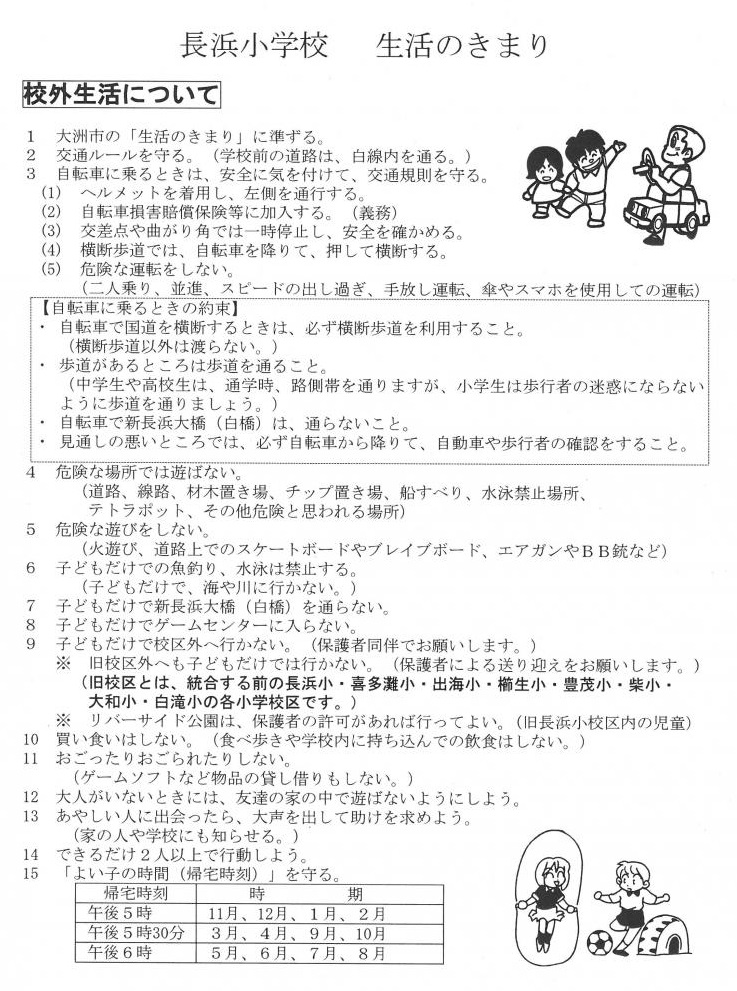 長浜小学校　　生活のきまり
校外生活について
１　大洲市の「生活のきまり」に準ずる。
２　交通ルールを守る。（学校前の道路は、白線内を通る。）
３　自転車に乗るときは、安全に気を付けて、交通規則を守る。
(1)　ヘルメットを着用し、左側を通行する。
(2)　自転車損害賠償保険等に加入する。（義務）
(3)　交差点や曲がり角では一時停止し、安全を確かめる。
(4)　横断歩道では、自転車を降りて、押して横断する。
(5)　危険な運転をしない。
（二人乗り、並進、スピードの出し過ぎ、手放し運転、傘やスマホを使用しての運転）
【自転車に乗るときの約束】
・　自転車で国道を横断するときは、必ず横断歩道を利用すること。
（横断歩道以外は渡らない。）
・　歩道があるところは歩道を通ること。
（中学生や高校生は、通学時、路側帯を通りますが、小学生は歩行者の迷惑にならない
ように歩道を通りましょう。）
・　自転車で新長浜大橋（白橋）は、通らないこと。
・　見通しの悪いところでは、必ず自転車から降りて、自動車や歩行者の確認をすること。
４　危険な場所では遊ばない。
（道路、線路、材木置き場、チップ置き場、船すべり、水泳禁止場所、
テトラポット、その他危険と思われる場所）
５　危険な遊びをしない。
（火遊び、道路上でのスケートボードやブレイブボード、エアガンやＢＢ銃など）
６　子どもだけでの魚釣り、水泳は禁止する。
（子どもだけで、海や川に行かない。）
７　子どもだけで新長浜大橋（白橋）を通らない。
８　子どもだけでゲームセンターに入らない。
９　子どもだけで校区外へ行かない。（保護者同伴でお願いします。）
※　旧校区外へも子どもだけでは行かない。（保護者による送り迎えをお願いします。）
（旧校区とは、統合する前の長浜小・喜多灘小・出海小・櫛生小・豊茂小・柴小・
大和小・白滝小の各小学校区です。）
※　リバーサイド公園は、保護者の許可があれば行ってよい。（旧長浜小校区内の児童）
10　買い食いはしない。（食べ歩きや学校内に持ち込んでの飲食はしない。）
11　おごったりおごられたりしない。
（ゲームソフトなど物品の貸し借りもしない。）
12　大人がいないときには、友達の家の中で遊ばないようにしよう。
13　あやしい人に出会ったら、大声を出して助けを求めよう。
（家の人や学校にも知らせる。）
14　できるだけ２人以上で行動しよう。
15　「よい子の時間（帰宅時刻）」を守る。
帰宅時刻　時　期
午後５時　11月、12月、１月、２月
午後５時30分　３月、４月、９月、10月
午後６時　５月、６月、７月、８月